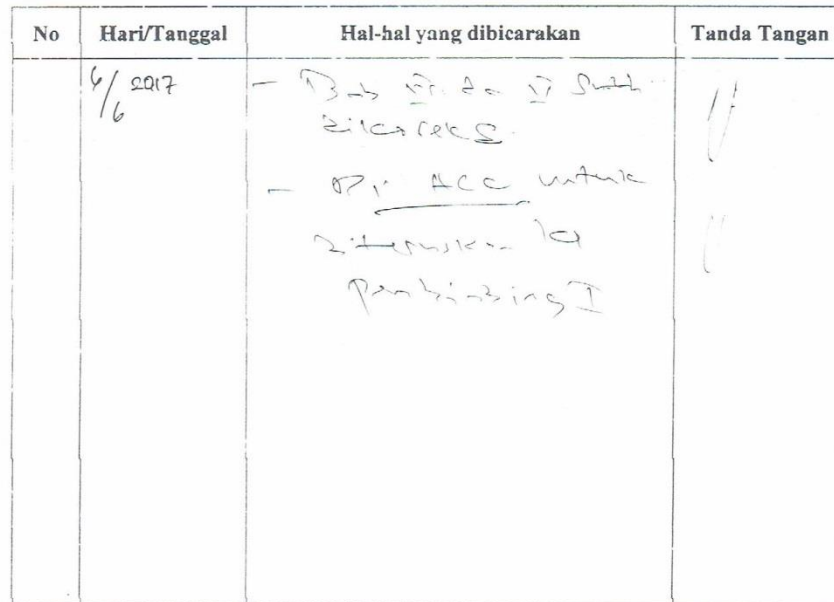 No Hari/Tanggal Hal-hal yang dibicarakan Tanda Tangan
6/6 2017 - Bab IV da V Sudah
dikoreksi
- Di ACC untuk
diteruskan ke
pembimbing I